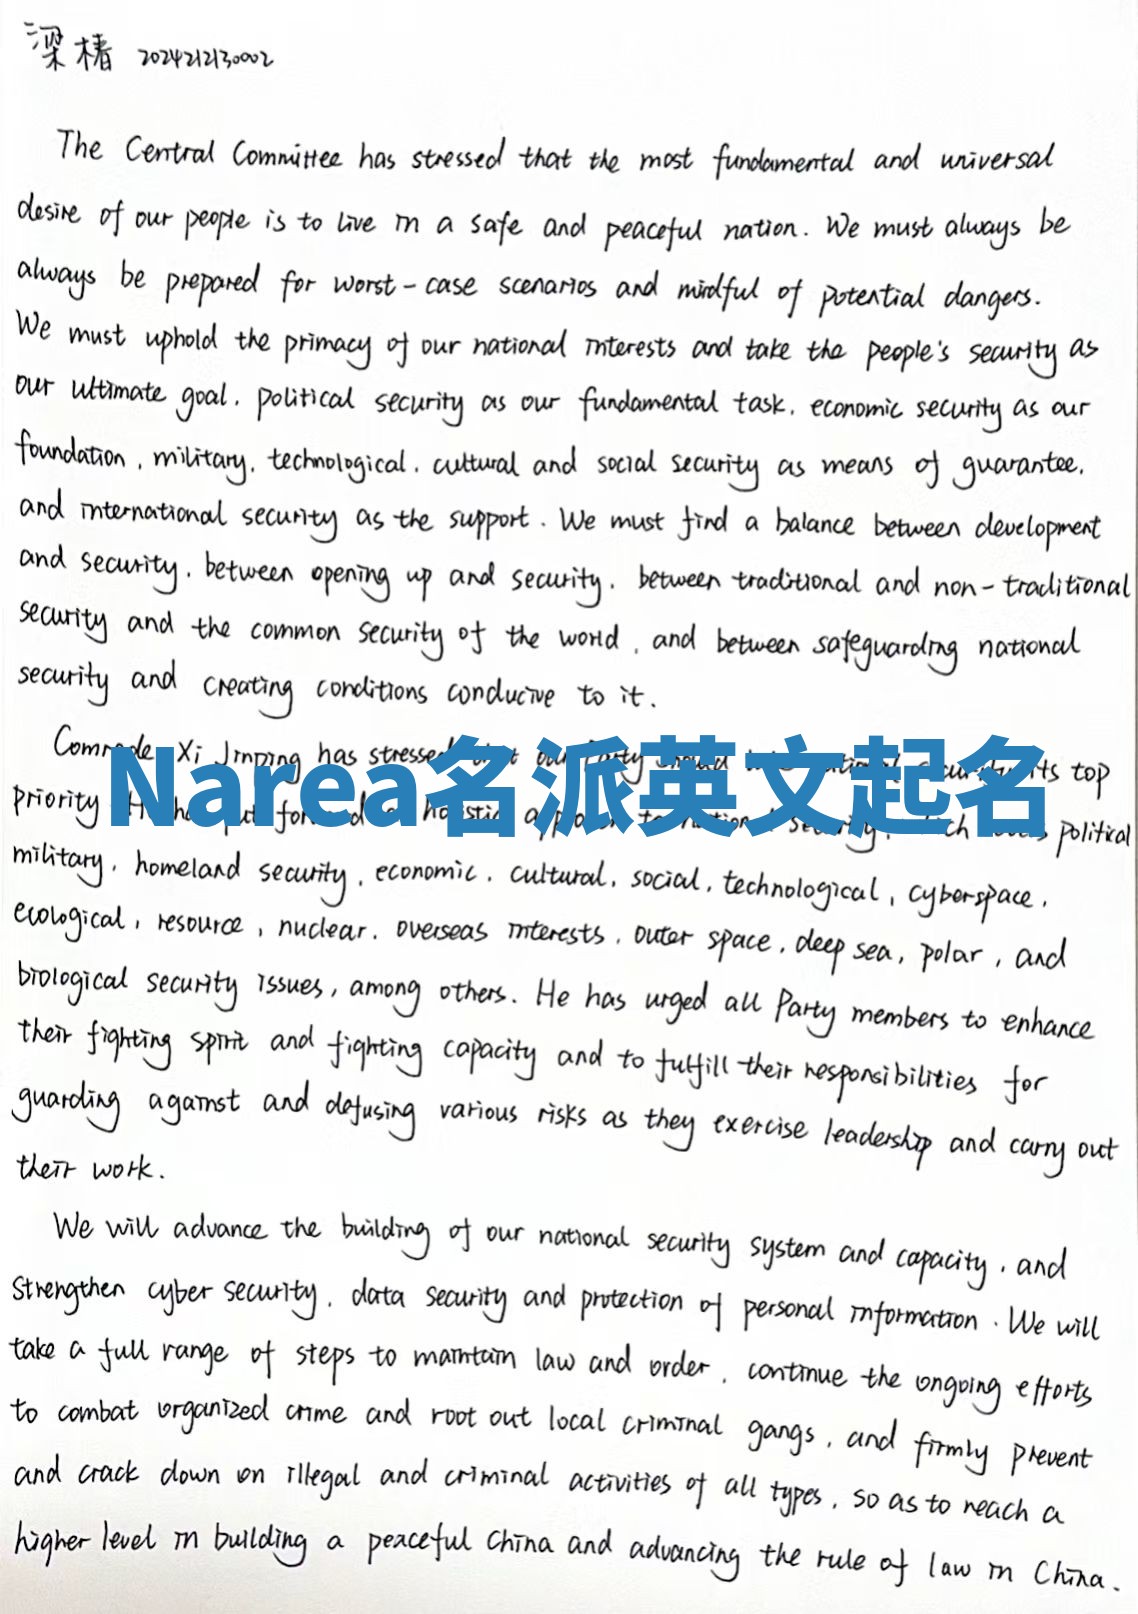 梁椿 2024212130002
The Central Committee has stressed that the most fundamental and universal
desire of our people is to live in a safe and peaceful nation. We must always be
always be prepared for worst-case scenarios and mindful of potential dangers.
We must uphold the primacy of our national interests and take the people's security as
our ultimate goal, political security as our fundamental task, economic security as our
foundation, military, technological, cultural and social security as means of guarantee,
and international security as the support. We must find a balance between development
and security, between opening up and security, between traditional and non-traditional
security and the common security of the world, and between safeguarding national
security and creating conditions conducive to it.
Comrade Xi Jinping has stressed our Party its top
priority political
Narea名派英文起名
military, homeland security, economic, cultural, social, technological, cyberspace,
ecological, resource, nuclear, overseas interests, outer space, deep sea, polar, and
biological security issues, among others. He has urged all Party members to enhance
their fighting spirit and fighting capacity and to fulfill their responsibilities for
guarding against and defusing various risks as they exercise leadership and carry out
their work.
We will advance the building of our national security system and capacity, and
strengthen cyber security, data security and protection of personal information. We will
take a full range of steps to maintain law and order, continue the ongoing efforts
to combat organized crime and root out local criminal gangs, and firmly prevent
and crack down on illegal and criminal activities of all types, so as to reach a
higher level in building a peaceful China and advancing the rule of law in China.